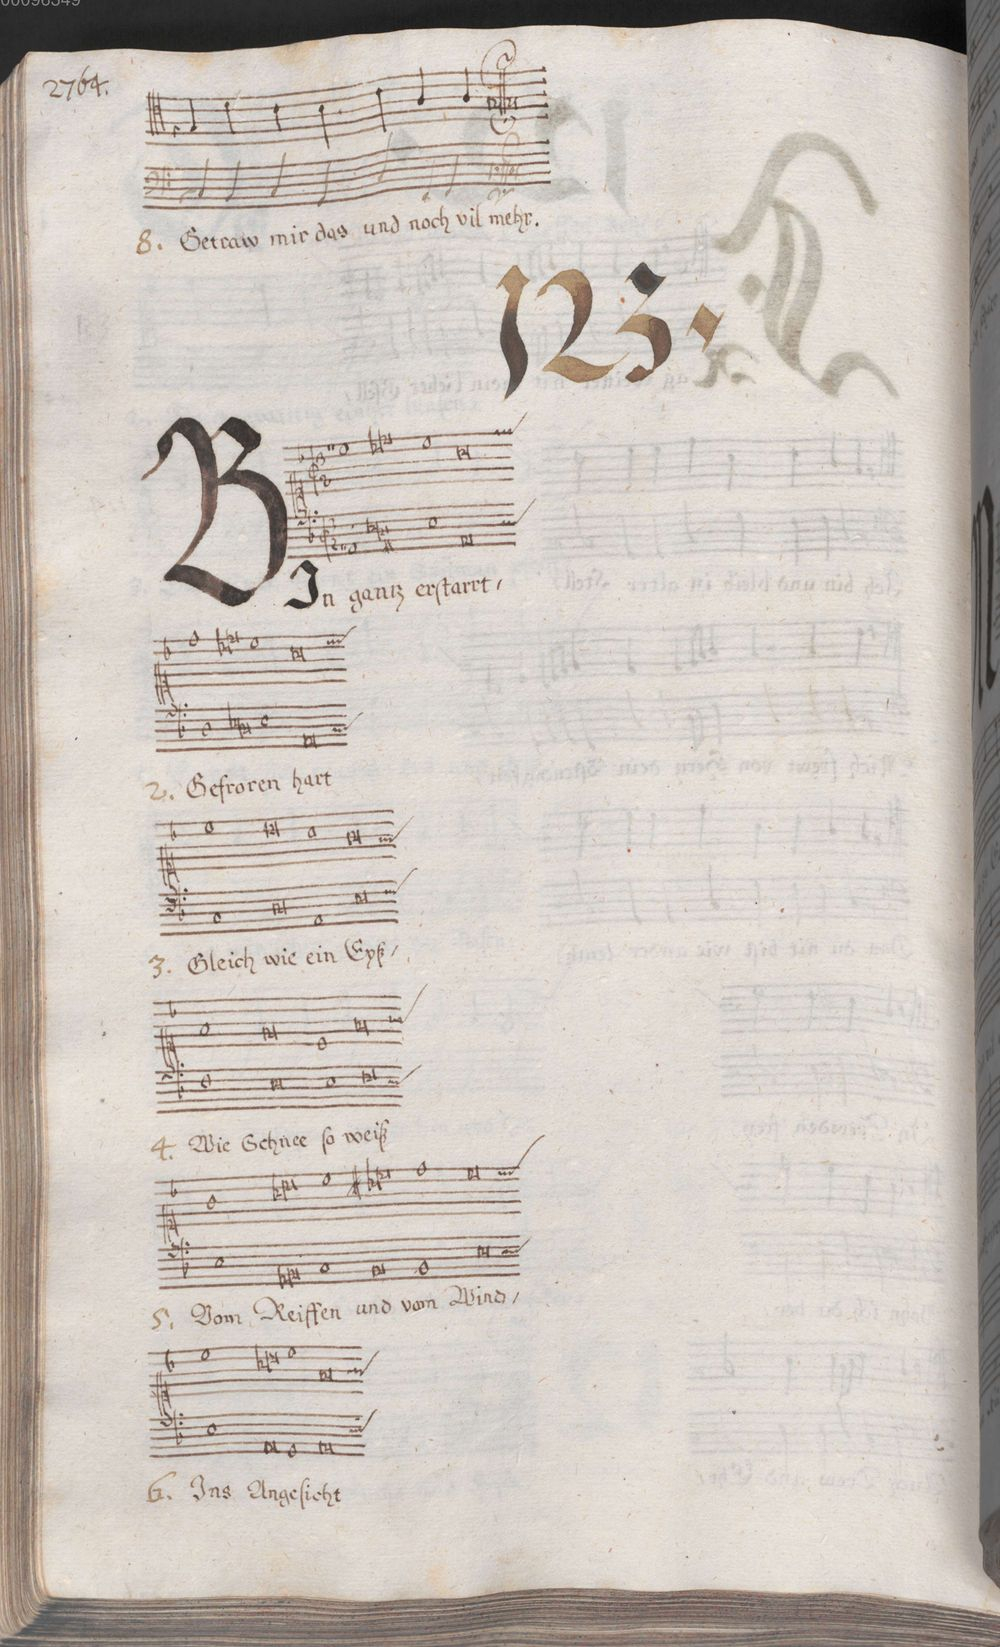 00098349
2764.
8. Getraw mir das und noch vil mehr.
123.
BIn gantz erstarrt,
2. Gefroren hart
3. Gleich wie ein Eyß,
4. Wie Schnee so weiß
5. Vom Reiffen und vom Wind,
6. Ins Angesicht